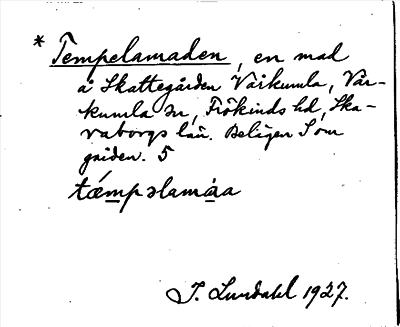 * Tempelamaden, en mad
å Skattegården Vårkumla, Vår-
kumla sn, Frökinds hd, Ska-
raborgs län. Belägen S om
gården. 5
tæmpəlamåa
J. Lundahl 1927.